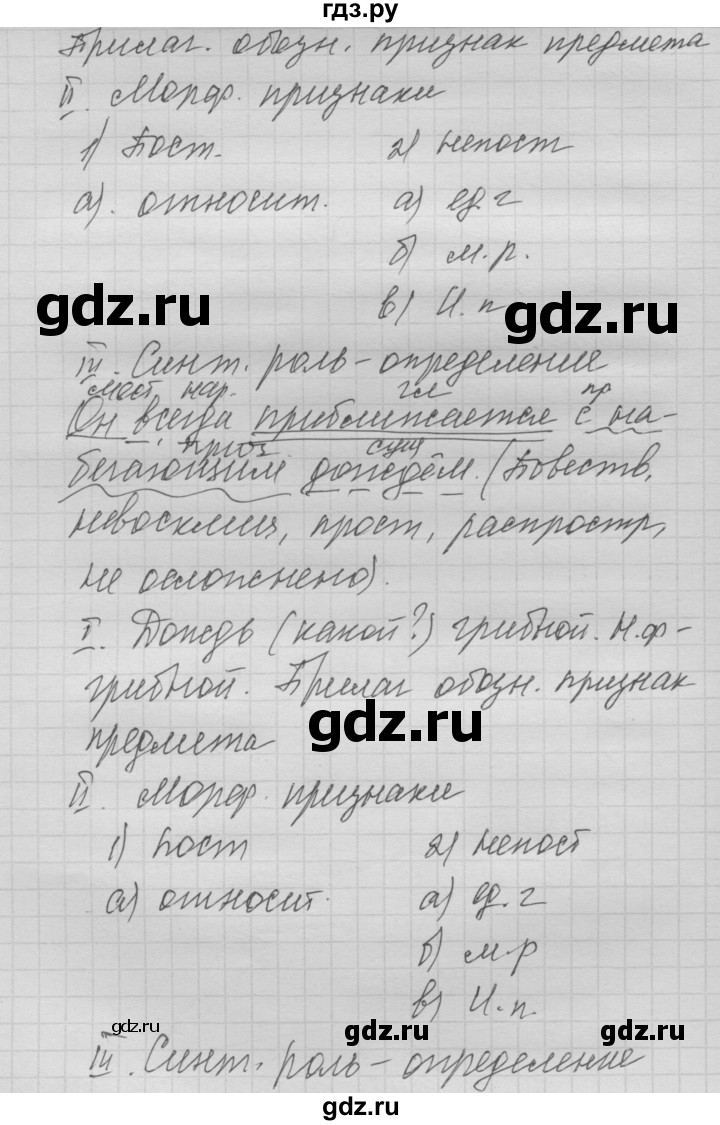 гдз.ру
Прилаг. обозн. признак предмета
II. Морф. признаки
1) Пост. 2) непост
а). относит. а) ед. ч
б) м.р.
в) И. п
gdz.ru gdz.ru
III. Синт. роль – определение
мест нар. гл пр
Он всегда приближается с на-
прил. сущ
бегающим дождём. (Повеств,
невосклиц, прост, распростр,
не осложнено).
I. Дождь (какой?) грибной. Н.ф-
грибной. Прилаг обозн. признак
gdz.ru
предмета
II. Морф. признаки
1) Пост 2) непост
а) относит. а) ед. ч
б) м.р
в) И. п.
gdz.ru gdz.ru gdz.ru
III. Синт. роль – определение
gdz.ru